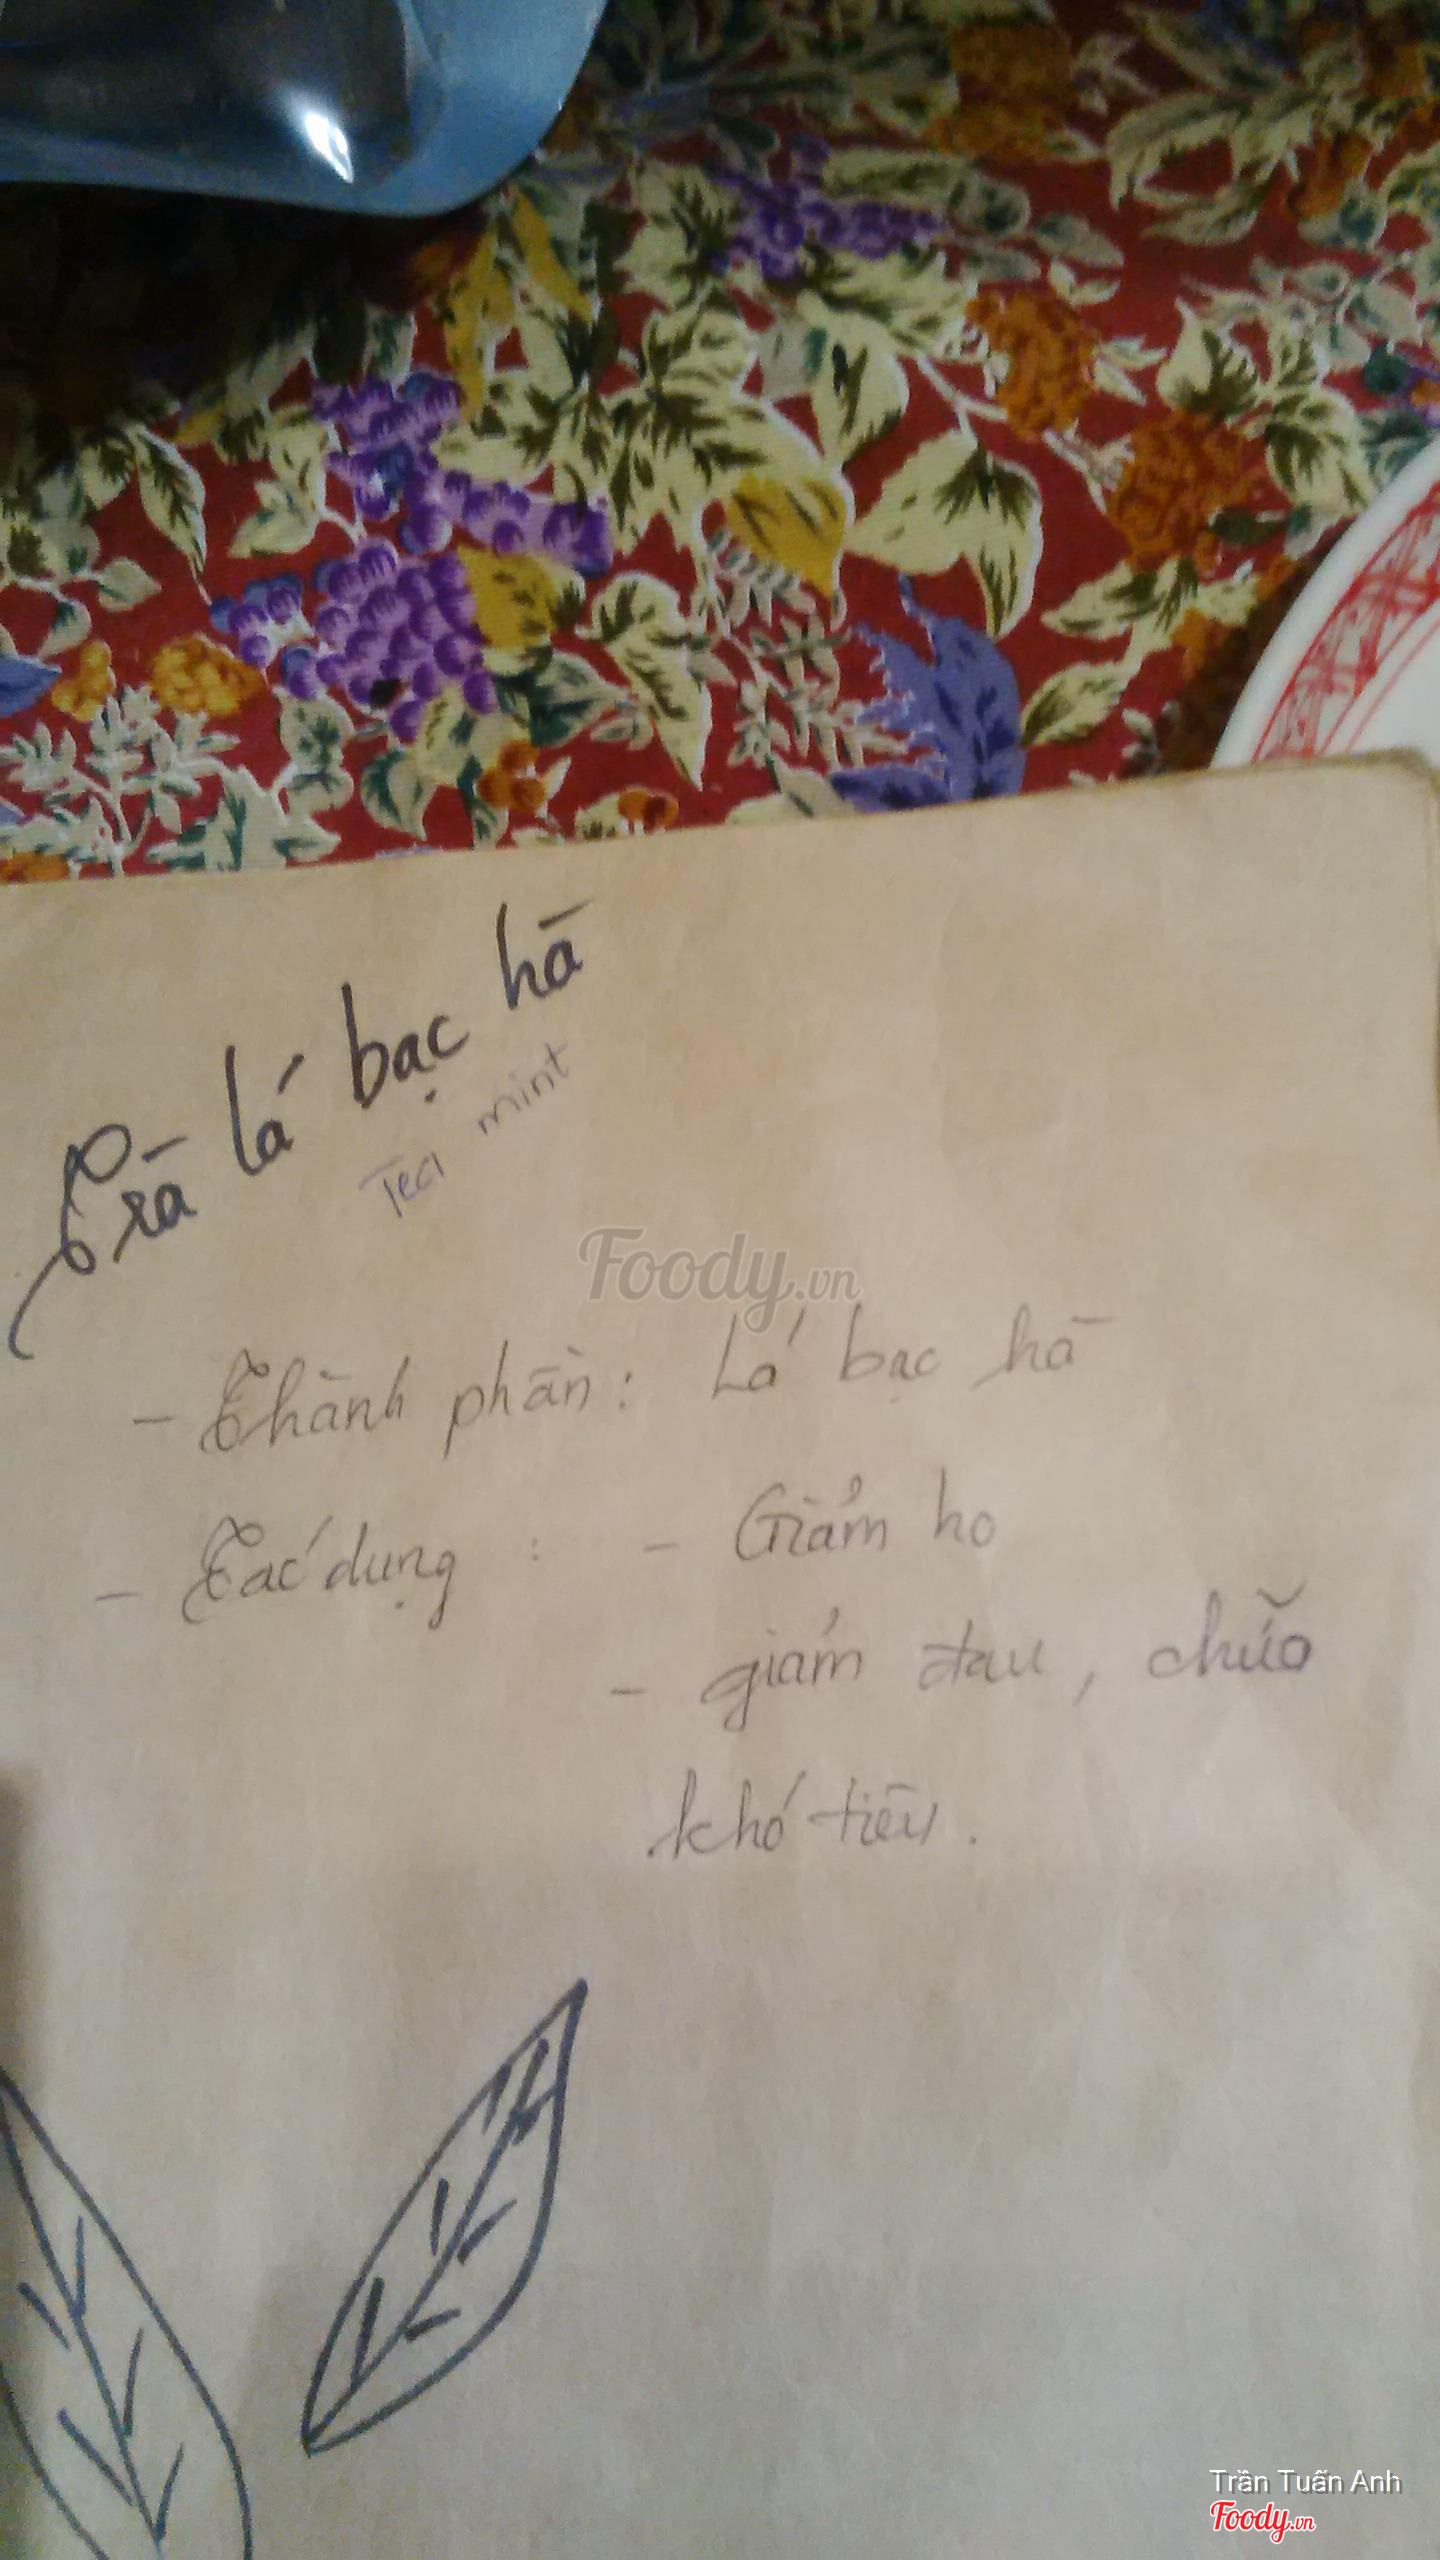 Trà lá bạc hà
Tea mint
Foody.vn
- Thành phần: Lá bạc hà
- Tác dụng : - Giảm ho
- giảm đau, chữa
khó tiêu.
Trần Tuấn Anh
Foody.vn